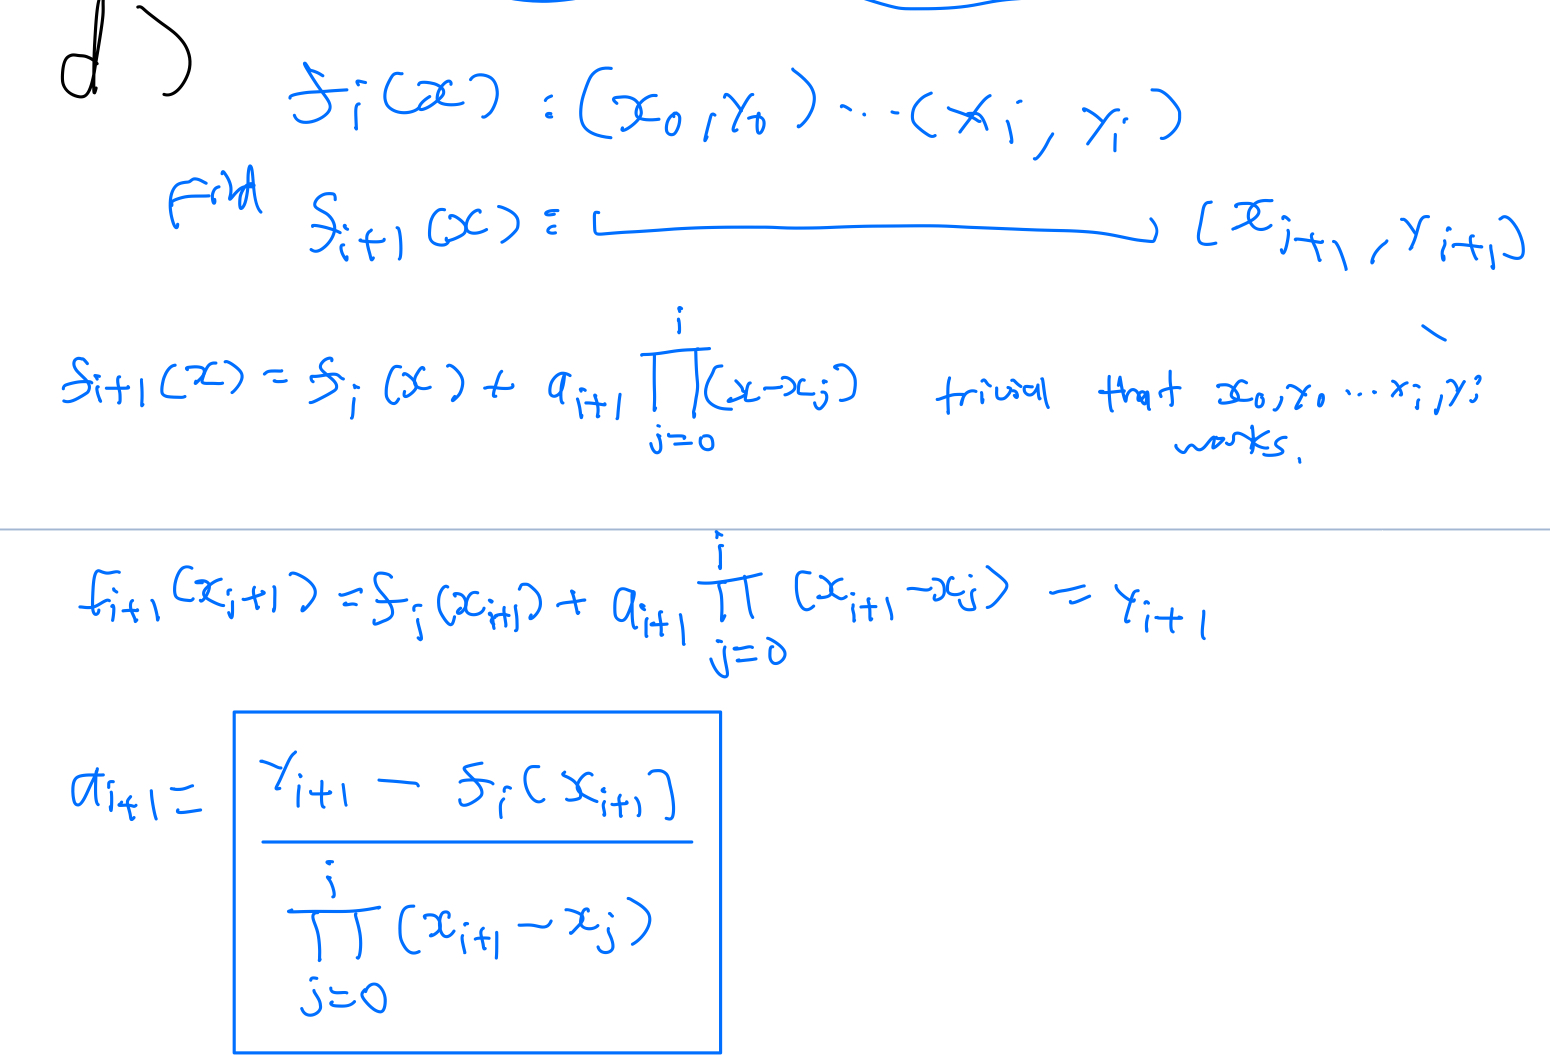 d)
f_i(x) : (x_0, y_0) ... (x_i, y_i)
Find f_{i+1}(x) : [_____] (x_{i+1}, y_{i+1})
f_{i+1}(x) = f_i(x) + a_{i+1} ∏_{j=0}^{i} (x - x_j) trivial that x_0, y_0 ... x_i, y_i
works.
f_{i+1}(x_{i+1}) = f_i(x_{i+1}) + a_{i+1} ∏_{j=0}^{i} (x_{i+1} - x_j) = y_{i+1}
a_{i+1} = \frac{y_{i+1} - f_i(x_{i+1})}{∏_{j=0}^{i} (x_{i+1} - x_j)}